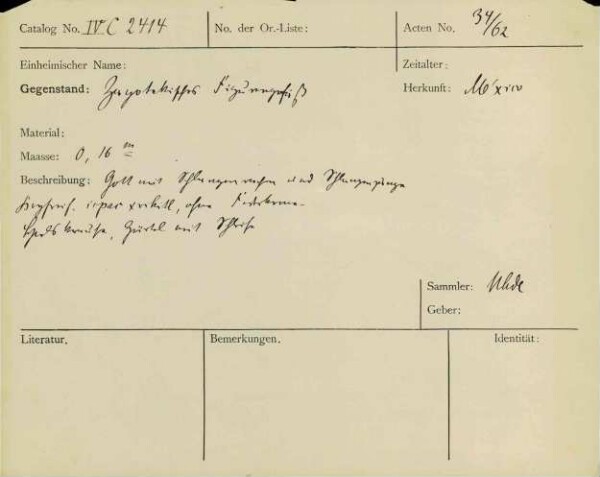 Catalog No. IV C 2414
No. der Or.-Liste:
Acten No. 34/62
Einheimischer Name:
Zeitalter:
Gegenstand: Zapotekisches Figurengefäß
Herkunft: México
Material:
Maasse: 0,16 m
Beschreibung: Gott mit Schlangenrachen und Schlangenzunge
ohne
mit Schleife
Sammler: Uhde
Geber:
Literatur.
Bemerkungen.
Identität: